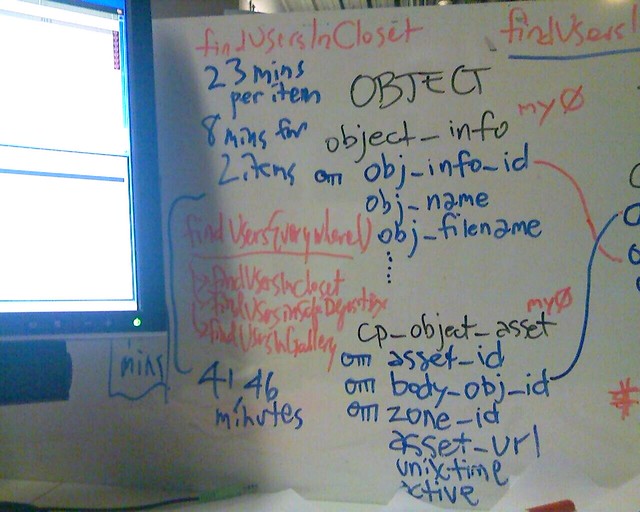 findUsersInCloset
23 mins
per item
8 mins for
2 items
findUsersEverywhere()
findUsersInCloset
findUsersInGallery
mins
41 46
minutes
OBJECT
my0
object_info
om obj_info_id
obj_name
obj_filename
my0
cp_object_asset
om asset_id
om body_obj_id
om zone_id
asset_url
unixtime
xtive
findUsersI